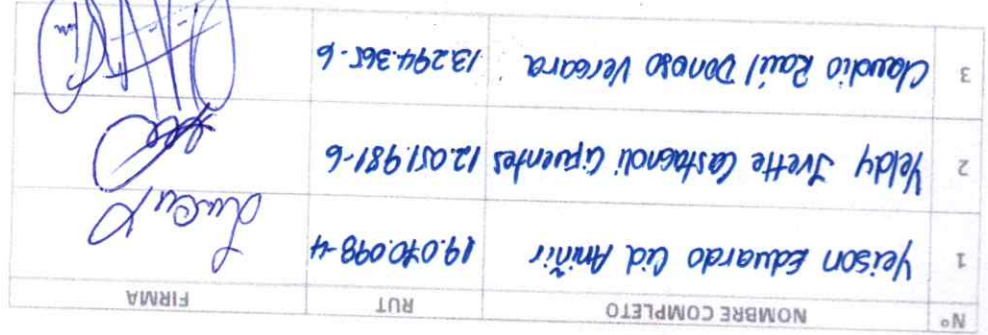 Nº NOMBRE COMPLETO RUT FIRMA
1 Yeison Eduardo Cid Aniñir 19.070.098-4
2 Yeldy Ivette Castagnoli Cifuentes 12.051.981-6
3 Claudio Raúl Donoso Vergara 13.294.365-6